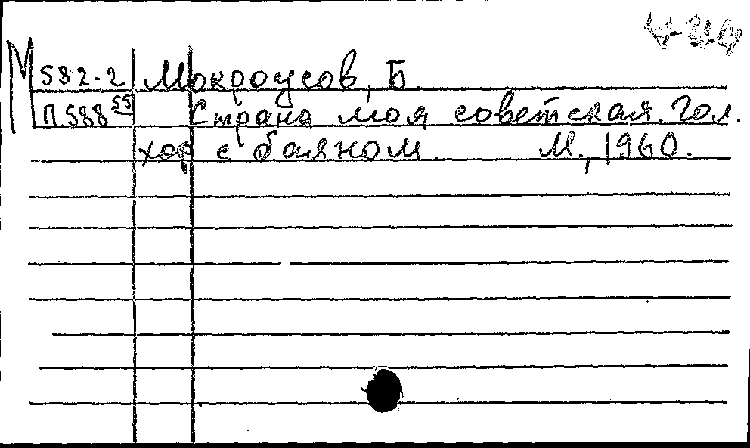 М 582-2 Мокроусов, Б.
П588 55 Страна моя советская. Гол.
хор с баяном. М., 1960.